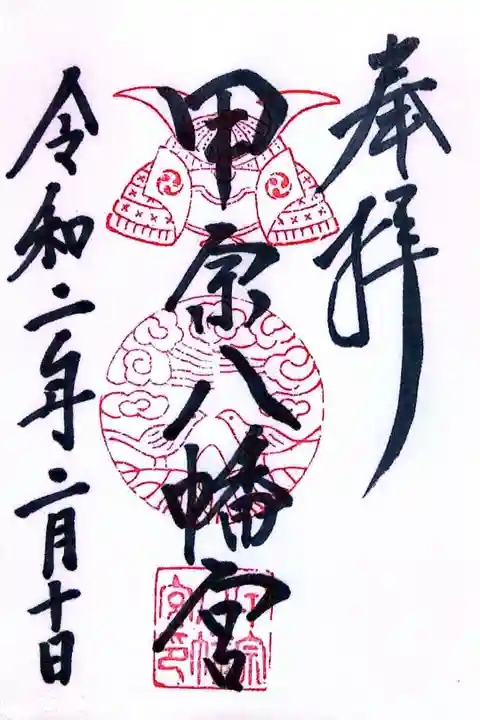 奉拝
甲宗八幡宮
令和二年二月十日